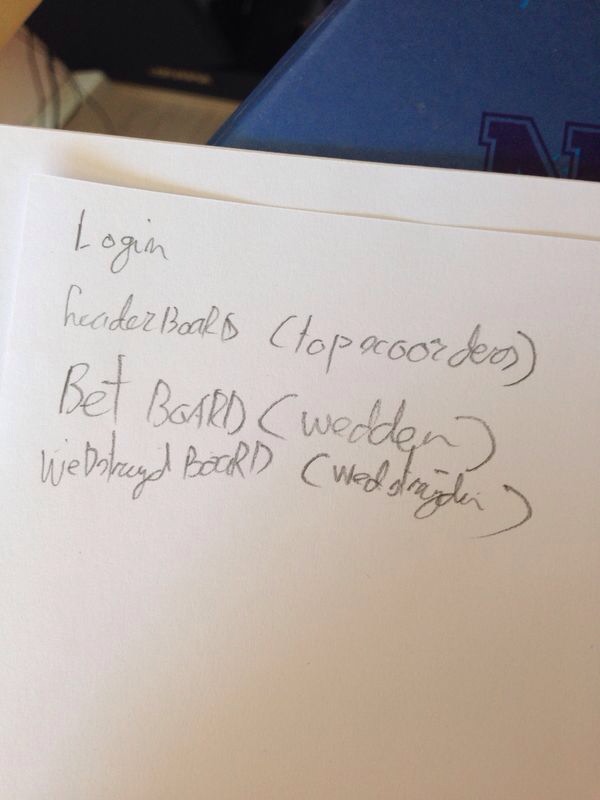 Login
headerBOARD (topscoorders)
Bet BOARD (wedden)
WeDstrayd BOARD (wedstrayden)
N